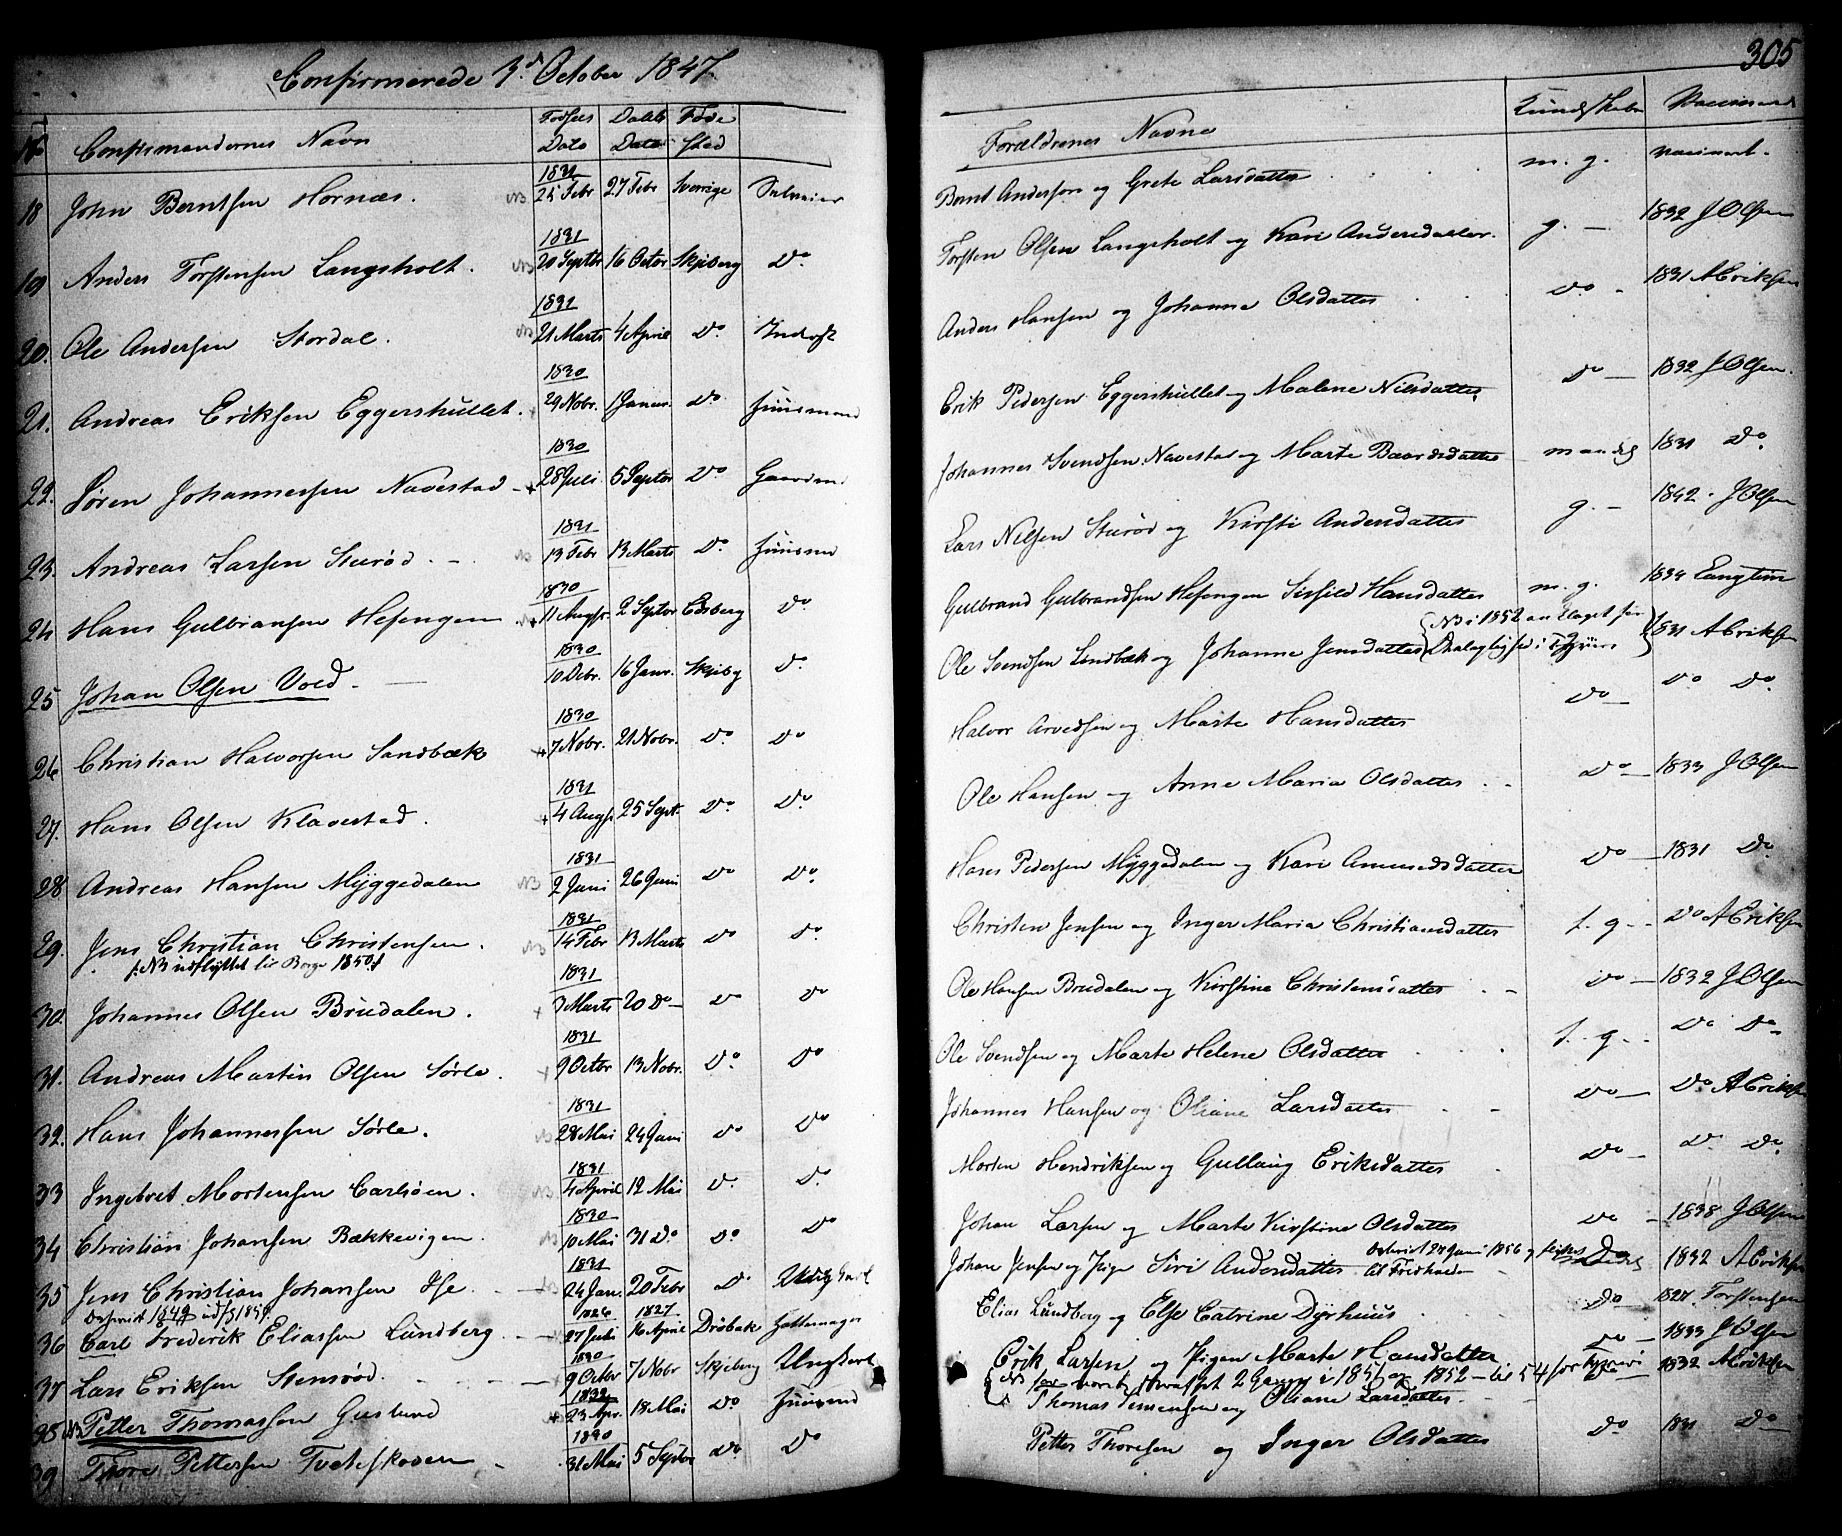 Confirmerede 3d October 1847
305
No Confirmandernes Navn Fødsels Dato Daabs Dato Føde Sted Forældrenes Navne Kundskaber Vaccinerede
18 John Berntsen Hornæs. NB 1831 25 Febr 27 Febr Sverrige Bernt Andersen og Grete Larsdatter m. g. vaccineret.
19 Anders Torstensen Langsholt. NB 1831 20 Septbr 16 Octbr Skjeberg Do. Torsten Olsen Langsholt og Kari Andersdatter. g. — 1832 J Olsen
20. Ole Andersen Stordal. NB 1831 21 Marts 4 April Do. Inderst Anders Hansen og Johanne Olsdatter Do. 1831 A Eriksen
21. Andreas Eriksen Eggershullet. + 1830 29 Nobr. 1 Januar Do. Huusmand Erik Pedersen Eggershullet og Malene Nilsdatter. Do — 1832 J Olsen.
22. Søren Johannessen Navestad + 1830 28 Juli 5 Septbr Do Gaardmd Johannes Svendsen Navestad og Marte Baardsdatter maadelig 1831 Do.
23. Andreas Larsen Sturød. NB 1831 13 Febr 13 Marts Do. Huusmd Lars Nilsen Sturød og Kirsti Andersdatter g. — 1842. J Olsen
24 Hans Gulbransen Hefengen + 1830 11 Augst 2 Septbr Edsberg Do Gulbrand Gulbrandsen Hefengen Sisfeld Hansdatter m. g. 1834
25 Johan Olsen Vold. 1830 10 Debr. 16 Janr. Skjebg Do Ole Svendsen Sandbæk og Johanne Jensdatter NB i 1852 anklaget for 1831 A Eriksen
26 Christian Halvorsen Sandbæk + 1830 7 Nobr. 21 Nobr. Do. Do Halvor Arvedsen og Marte Hansdatter Do — Do Do.
27. Hans Olsen Klavestad. + 1831 4 Augst 25 Sept. Do. Do. Ole Hansen og Anne Maria Olsdatter Do — 1833 J Olsen
28 Andreas Hansen Myggedalen NB 1831 2 Juni 26 Juni Do Do. Hans Pedersen Myggedalen og Kari Amundsdatter Do — 1831 Do.
29. Jens Christian Christensen. NB 1831 14 Febr 13 Marts Do Do. Christen Jensen og Inger Maria Christiansdatter t. g. Do A Eriksen
NB udflyttet til Borge 1850
30. Johannes Olsen Brudalen. + 1831 3 Marts 20 Do — Do Do Ole Hansen Brudalen og Kirstine Christensdatter Do — 1832 J Olsen
31. Andreas Martin Olsen Sørle. + 1831 9 Octbr 13 Nobr. Do. Do Ole Svendsen og Marte Helene Olsdatter t. g. Do Do
32. Hans Johannessen Sørle. NB 1831 28 Mai 24 Juni Do Do Johannes Hansen og Oliane Larsdatter Do — Do A Eriksen
33 Ingebret Mortensen Carlsøen. NB 1831 4 April 12 Mai Do. Do. Morten Hendriksen og Gullaug Eriksdatter Do — Do Do.
34 Christian Johansen Bækkevigen. NB 1830 10 Mai 31 Do Do Do Johan Larsen og Marte Kirstine Olsdatter Do — 1838 J Olsen
35 Jens Christian Johansen Ise. 1831 24 Jan. 20 Febr Do Ungkarl Johan Jensen og Pige Siri Andersdatter Attesteret 24 Juni 1856 til Fredshald Do 1832 A Eriksen
36 Carl Frederik Eliassen Lundberg 1826 27 Juli 1827 16 April Drøbak Hattemager Elias Lundberg og Else Catrine Dyrhuus Do 1827. Torstensen
37 Lars Eriksen Stensrød. 1830 9 Octbr 7 Nobr Skjeberg Ungkarl Erik Larsen og Pigen Marte Hansdatter Do — 1833 J Olsen
38 NB Petter Thomassen Guslund 1832 23 Apr. 18 Mai Do. Huusmd NB straffet 2 Gange i 1851 og 1852 Thomas og Oliane Larsdatter 1832 A Eriksen
39 Thore Pettersen Tvetеskoven 1830 31 Mai 5 Septbr Do. Do Petter Thoresen og Inger Olsdatter Do. 1831 Do